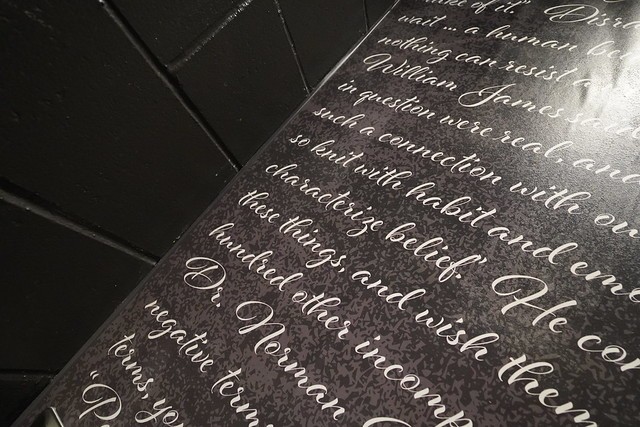 of it." Disr
wait... a human be
nothing can resist a
William James said
in question were real, and
such a connection with ou
so knit with habit and emo
characterize belief." He con
these things, and wish them
hundred other incomp
Dr. Norman
negative terms
terms, yo
"P